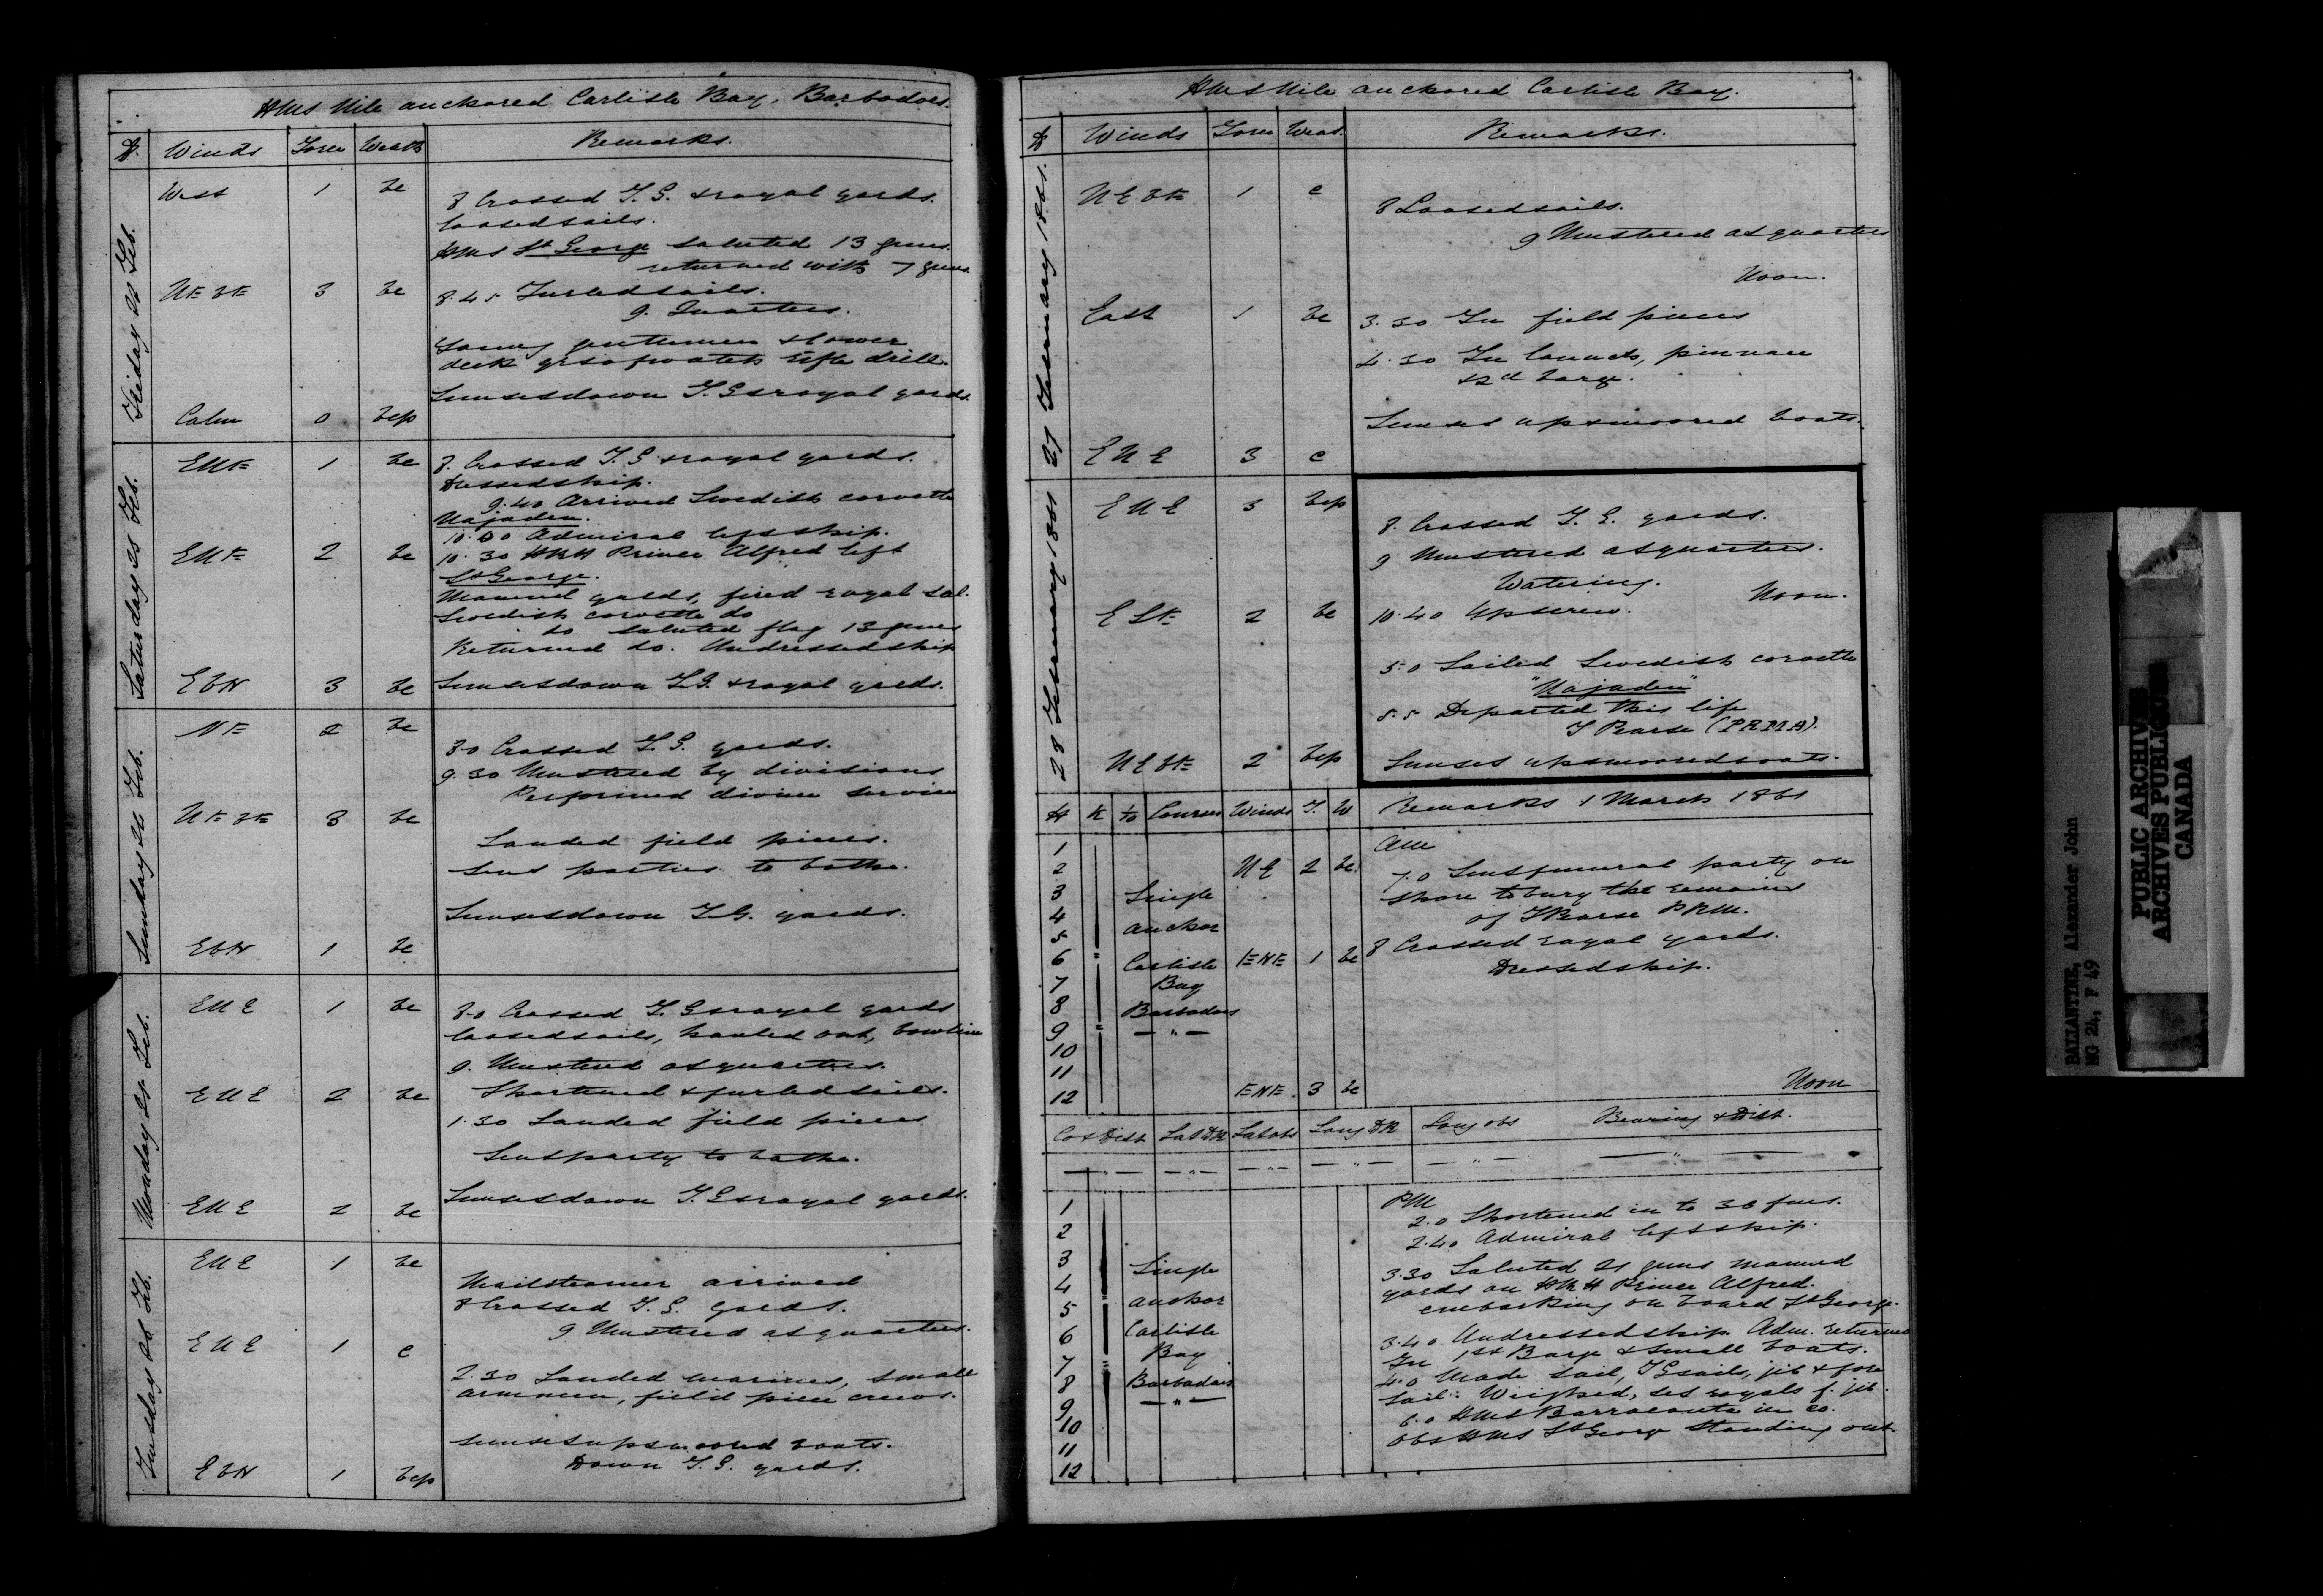 HMS Nile anchored Carlisle Bay, Barbadoes.
D. Winds Force Weath Remarks.
Friday 22 Feb.
West 1 bc
8 Crossed T.G. & royal yards.
loosed sails.
HMS St George saluted 13 guns.
returned with 7 guns
NE bE 3 bc
8.45 Furled sails.
9. Quarters.
Young gentlemen & lower
deck qrs of watch rifle drill.
Sunset down T.G & royal yards.
Calm 0 bcp
Saturday 23 Feb.
ENE 1 bc
8. Crossed T.G & royal yards.
Dressed ship.
9.40 Arrived Swedish corvette
Najaden.
10.20 Admiral left ship.
ENE 2 bc
10.30 HRH Prince Alfred left
St George.
Manned yards, fired royal sal.
Swedish corvette do
do saluted flag 13 guns
Returned do. Undressed ship
EbN 3 bc
Sunset down T.G. & royal yards.
Sunday 24 Feb.
NE 2 bc
8.0 Crossed T.G. yards.
9.30 Mustered by divisions
Performed divine service
NE bE 3 bc
Landed field pieces.
Sent parties to bathe.
Sunset down T.G. yards.
EbN 1 bc
Monday 25 Feb.
ENE 1 bc
8.0 Crossed T.G & royal yards
loosed sails, hauled out, bowline
9. Mustered at quarters.
ENE 2 bc
Shortened & furled sails.
1.30 Landed field pieces
Sent party to bathe.
ENE 2 bc
Sunset down T.G & royal yards.
Tuesday 26 Feb.
ENE 1 bc
Mail steamer arrived
8 Crossed T.G. yards.
9 Mustered at quarters.
ENE 1 c
2.30 Landed marines, small
arm men, field piece crews.
Sunset up & moored boats.
EbN 1 bcp
Down T.G. yards.
HMS Nile anchored Carlisle Bay.
D Winds Force Weat. Remarks.
27 February 1861.
NE bE 1 c
8 Loosed sails.
9 Mustered at quarters
Noon.
East 1 bc
3.30 In field pieces
4.30 In launch, pinnace
& 2d barge.
Sunset up & moored boats.
ENE 3 c
28 February 1861
ENE 3 bcp
8. Crossed T.G. yards.
9 Mustered at quarters.
Watering.
Noon.
ESE 2 bc
10.40 Up screw.
5.0 Sailed Swedish corvette
"Najaden"
5.5 Departed this life
T Pearse (PRMA).
NE bE 2 bcp
Sunset up & moored boats.
H K To Courses Winds F. W Remarks 1 March 1861
AM
1
2 NE 2 bc.
7.0 Sent funeral party on
3 Single
shore to bury the remains
4 anchor
of T Pearse PRM.
5
6 Carlisle ENE 1 bc
8 Crossed royal yards.
7 Bay
Dressed ship.
8 Barbadoes
9 — " —
10
11
12 ENE. 3 bc
Noon
Co & Dist Lat DR Lat obs Long DR Long obs Bearing & Dist.
— " — — " — — " — — " — — " — — " —
PM
1
2.0 Shortened in to 36 fms.
2
2.40 Admiral left ship.
3 Single
3.30 Saluted 21 guns manned
4
yards on HRH Prince Alfred.
5 anchor
embarking on board St George.
6 Carlisle
3.40 Undressed ship. Adm. returned
7 Bay
In 1st Barge & small boats.
8 Barbadoes
4.0 Made sail, TGsails, jib & fore
9 — " —
sail. Weighed, set royals f. jib.
10
6.0 HMS Barracouta in co.
11
Obs HMS St George standing out
12
BALLANTINE, Alexander John
MG 24, F 49
PUBLIC ARCHIVES
ARCHIVES PUBLIQUES
CANADA